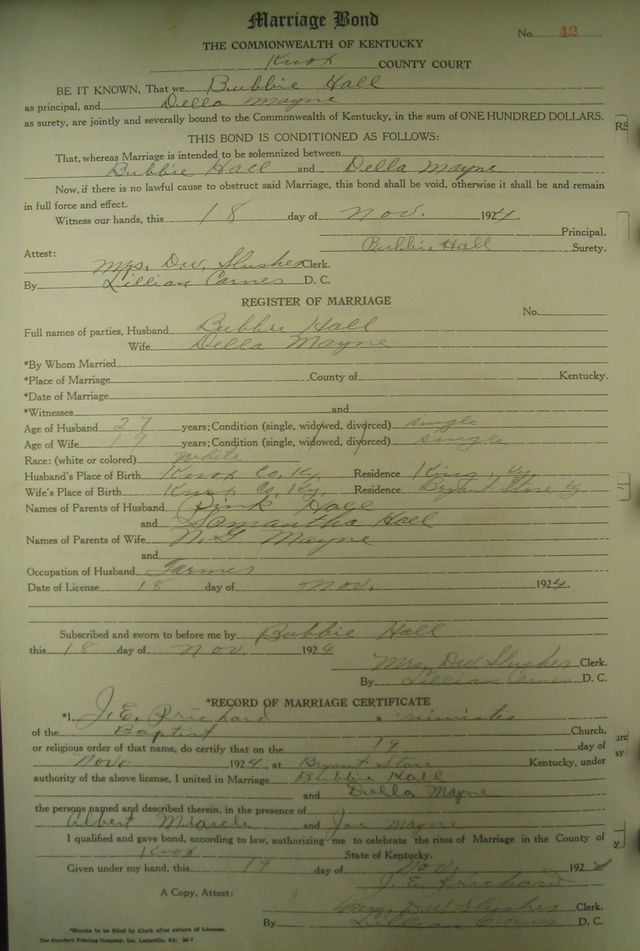 Marriage Bond
No. 42
THE COMMONWEALTH OF KENTUCKY
Knox COUNTY COURT
BE IT KNOWN, That we Bubbie Hall
as principal, and Della Mayne
as surety, are jointly and severally bound to the Commonwealth of Kentucky, in the sum of ONE HUNDRED DOLLARS.
THIS BOND IS CONDITIONED AS FOLLOWS:
That, whereas Marriage is intended to be solemnized between
Bubbie Hall and Della Mayne
Now, if there is no lawful cause to obstruct said Marriage, this bond shall be void, otherwise it shall be and remain
in full force and effect.
Witness our hands, this 18 day of Nov. 1924
Principal.
Bubbie Hall Surety.
Attest:
Mrs. D.W. Slusher Clerk.
By Lillian Carnes D. C.
REGISTER OF MARRIAGE
No.
Full names of parties, Husband Bubbie Hall
Wife Della Mayne
*By Whom Married
*Place of Marriage County of Kentucky.
*Date of Marriage
*Witnesses and
Age of Husband 27 years; Condition (single, widowed, divorced) single
Age of Wife 19 years; Condition (single, widowed, divorced) single
Race: (white or colored) White
Husband's Place of Birth Knox Co. Ky. Residence King, Ky.
Wife's Place of Birth Knox Co. Ky. Residence Bryant Store Ky
Names of Parents of Husband Pink Hall
and Samantha Hall
Names of Parents of Wife N.G. Mayne
and
Occupation of Husband Farmer
Date of License 18 day of Nov. 1924
Subscribed and sworn to before me by Bubbie Hall
this 18 day of Nov 1924
Mrs. D.W. Slusher Clerk.
By Lillian Carnes D. C.
*RECORD OF MARRIAGE CERTIFICATE
*I, J.E. Prichard a minister
of the Baptist Church,
or religious order of that name, do certify that on the 19 day of
Nov. 1924, at Bryant Store Kentucky, under
authority of the above license, I united in Marriage Bubbie Hall
and Della Mayne
the persons named and described therein, in the presence of
Albert Miracle and Mayne
I qualified and gave bond, according to law, authorizing me to celebrate the rites of Marriage in the County of
Knox State of Kentucky.
Given under my hand, this 19 day of Nov. 1924
J. E. Prichard
A Copy, Attest:
Mrs. D.W. Slusher Clerk.
By Lillian Carnes D. C.
*Blanks to be filed by Clerk after return of License.
The Standard Printing Company, Inc. Louisville, Ky. M-7